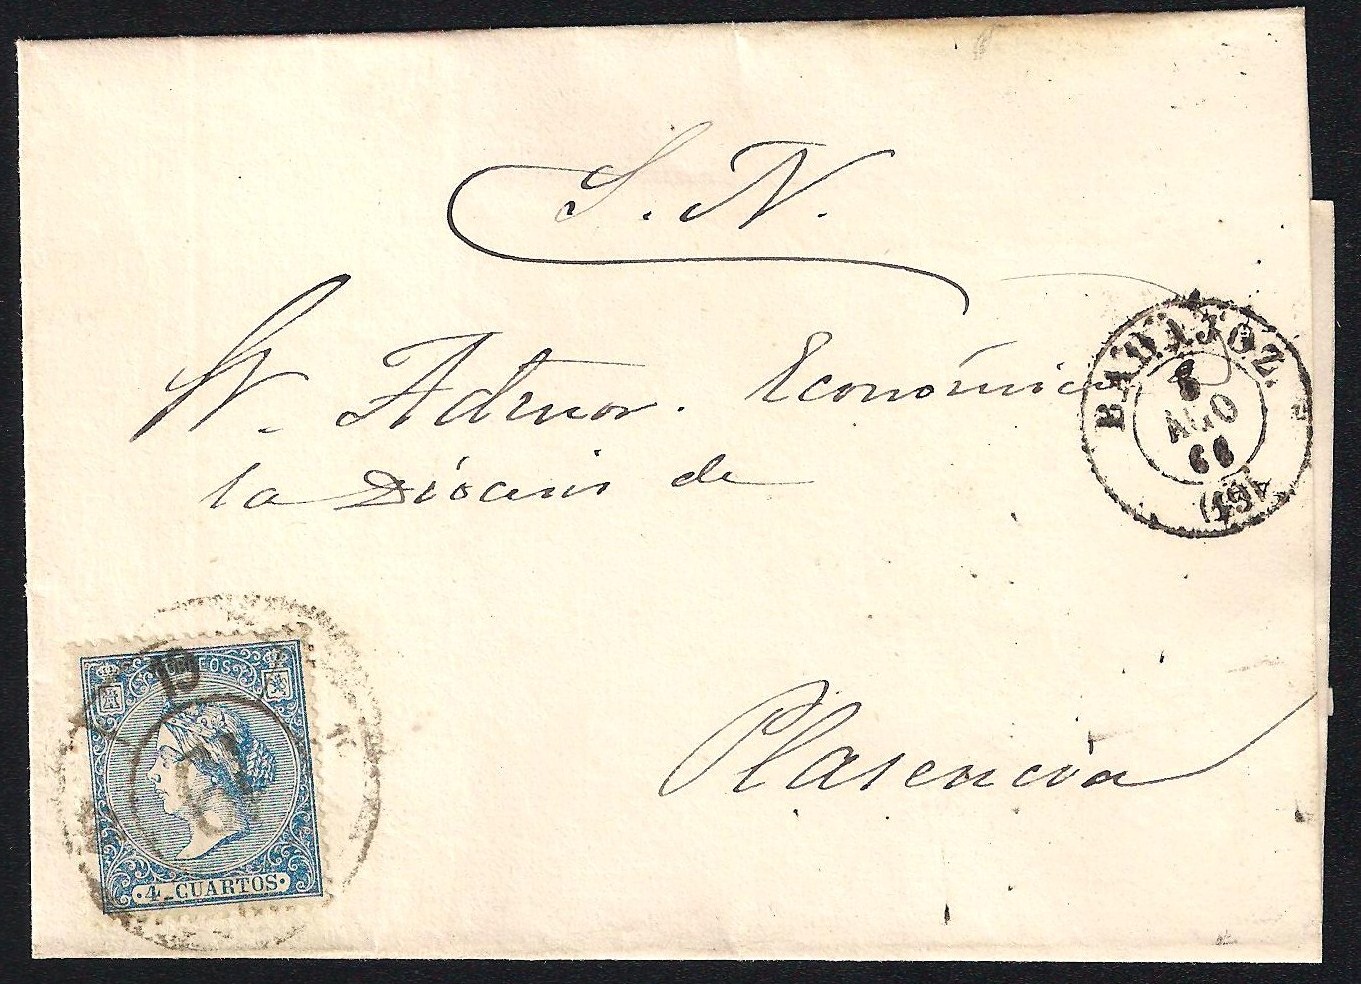 S. N.
Sr. Admor. Económico
la Diócesis de
Plasencia
BADAJOZ.
5
AGO
66
(19)
CORREOS
19
4 CUARTOS